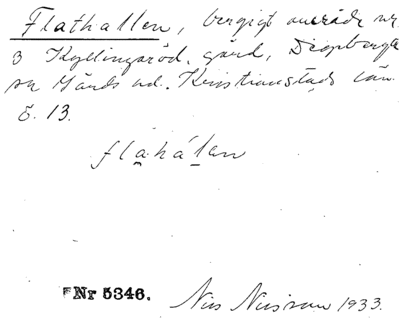 Flathallen, bergigt område nr
3 Kyllingaröd, gård, Degeberga
sn Gärds hd. Kristianstads län.
E. 13.
flahálen
Nr 5346. Nils Nilsson 1933.